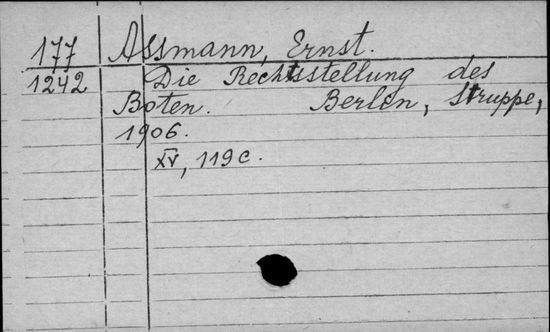 177 Assmann, Ernst.
1242 Die Rechtsstellung des
Boten. Berlen, Struppe,
1906.
XV, 119 c.